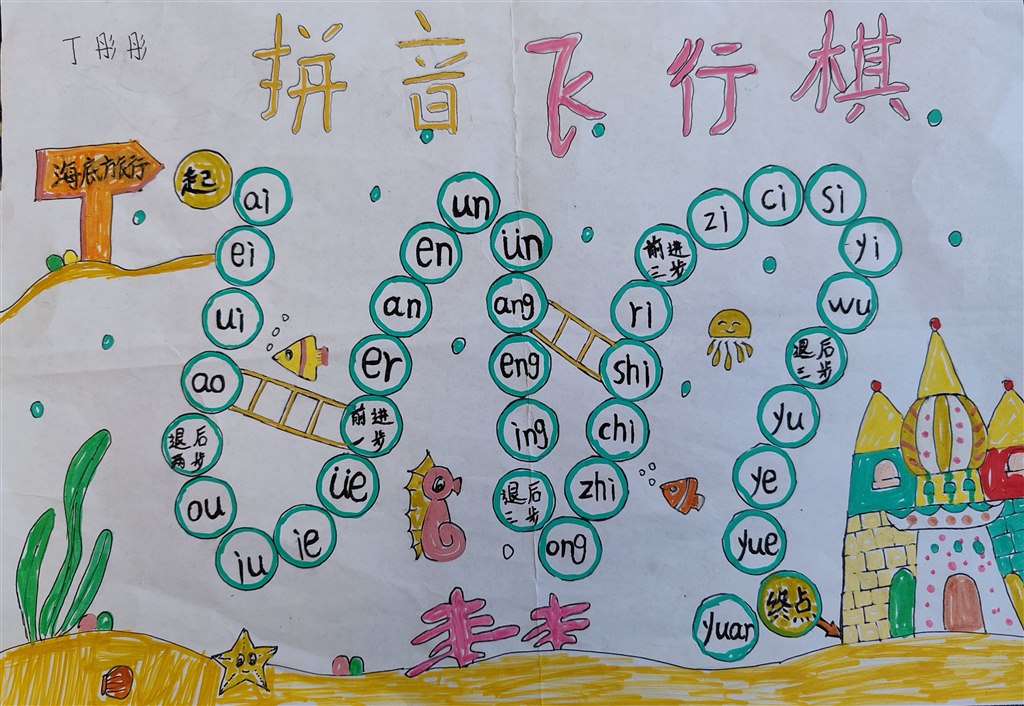 丁彤彤
拼音飞行棋
海底旅行
起
ai
ei
ui
ao
退后
两步
ou
iu
ie
üe
前进
一步
er
an
en
un
ün
ang
eng
ing
退后
三步
ong
zhi
chi
shi
ri
前进
三步
zi
ci
si
yi
wu
退后
三步
yu
ye
yue
yuar
终点